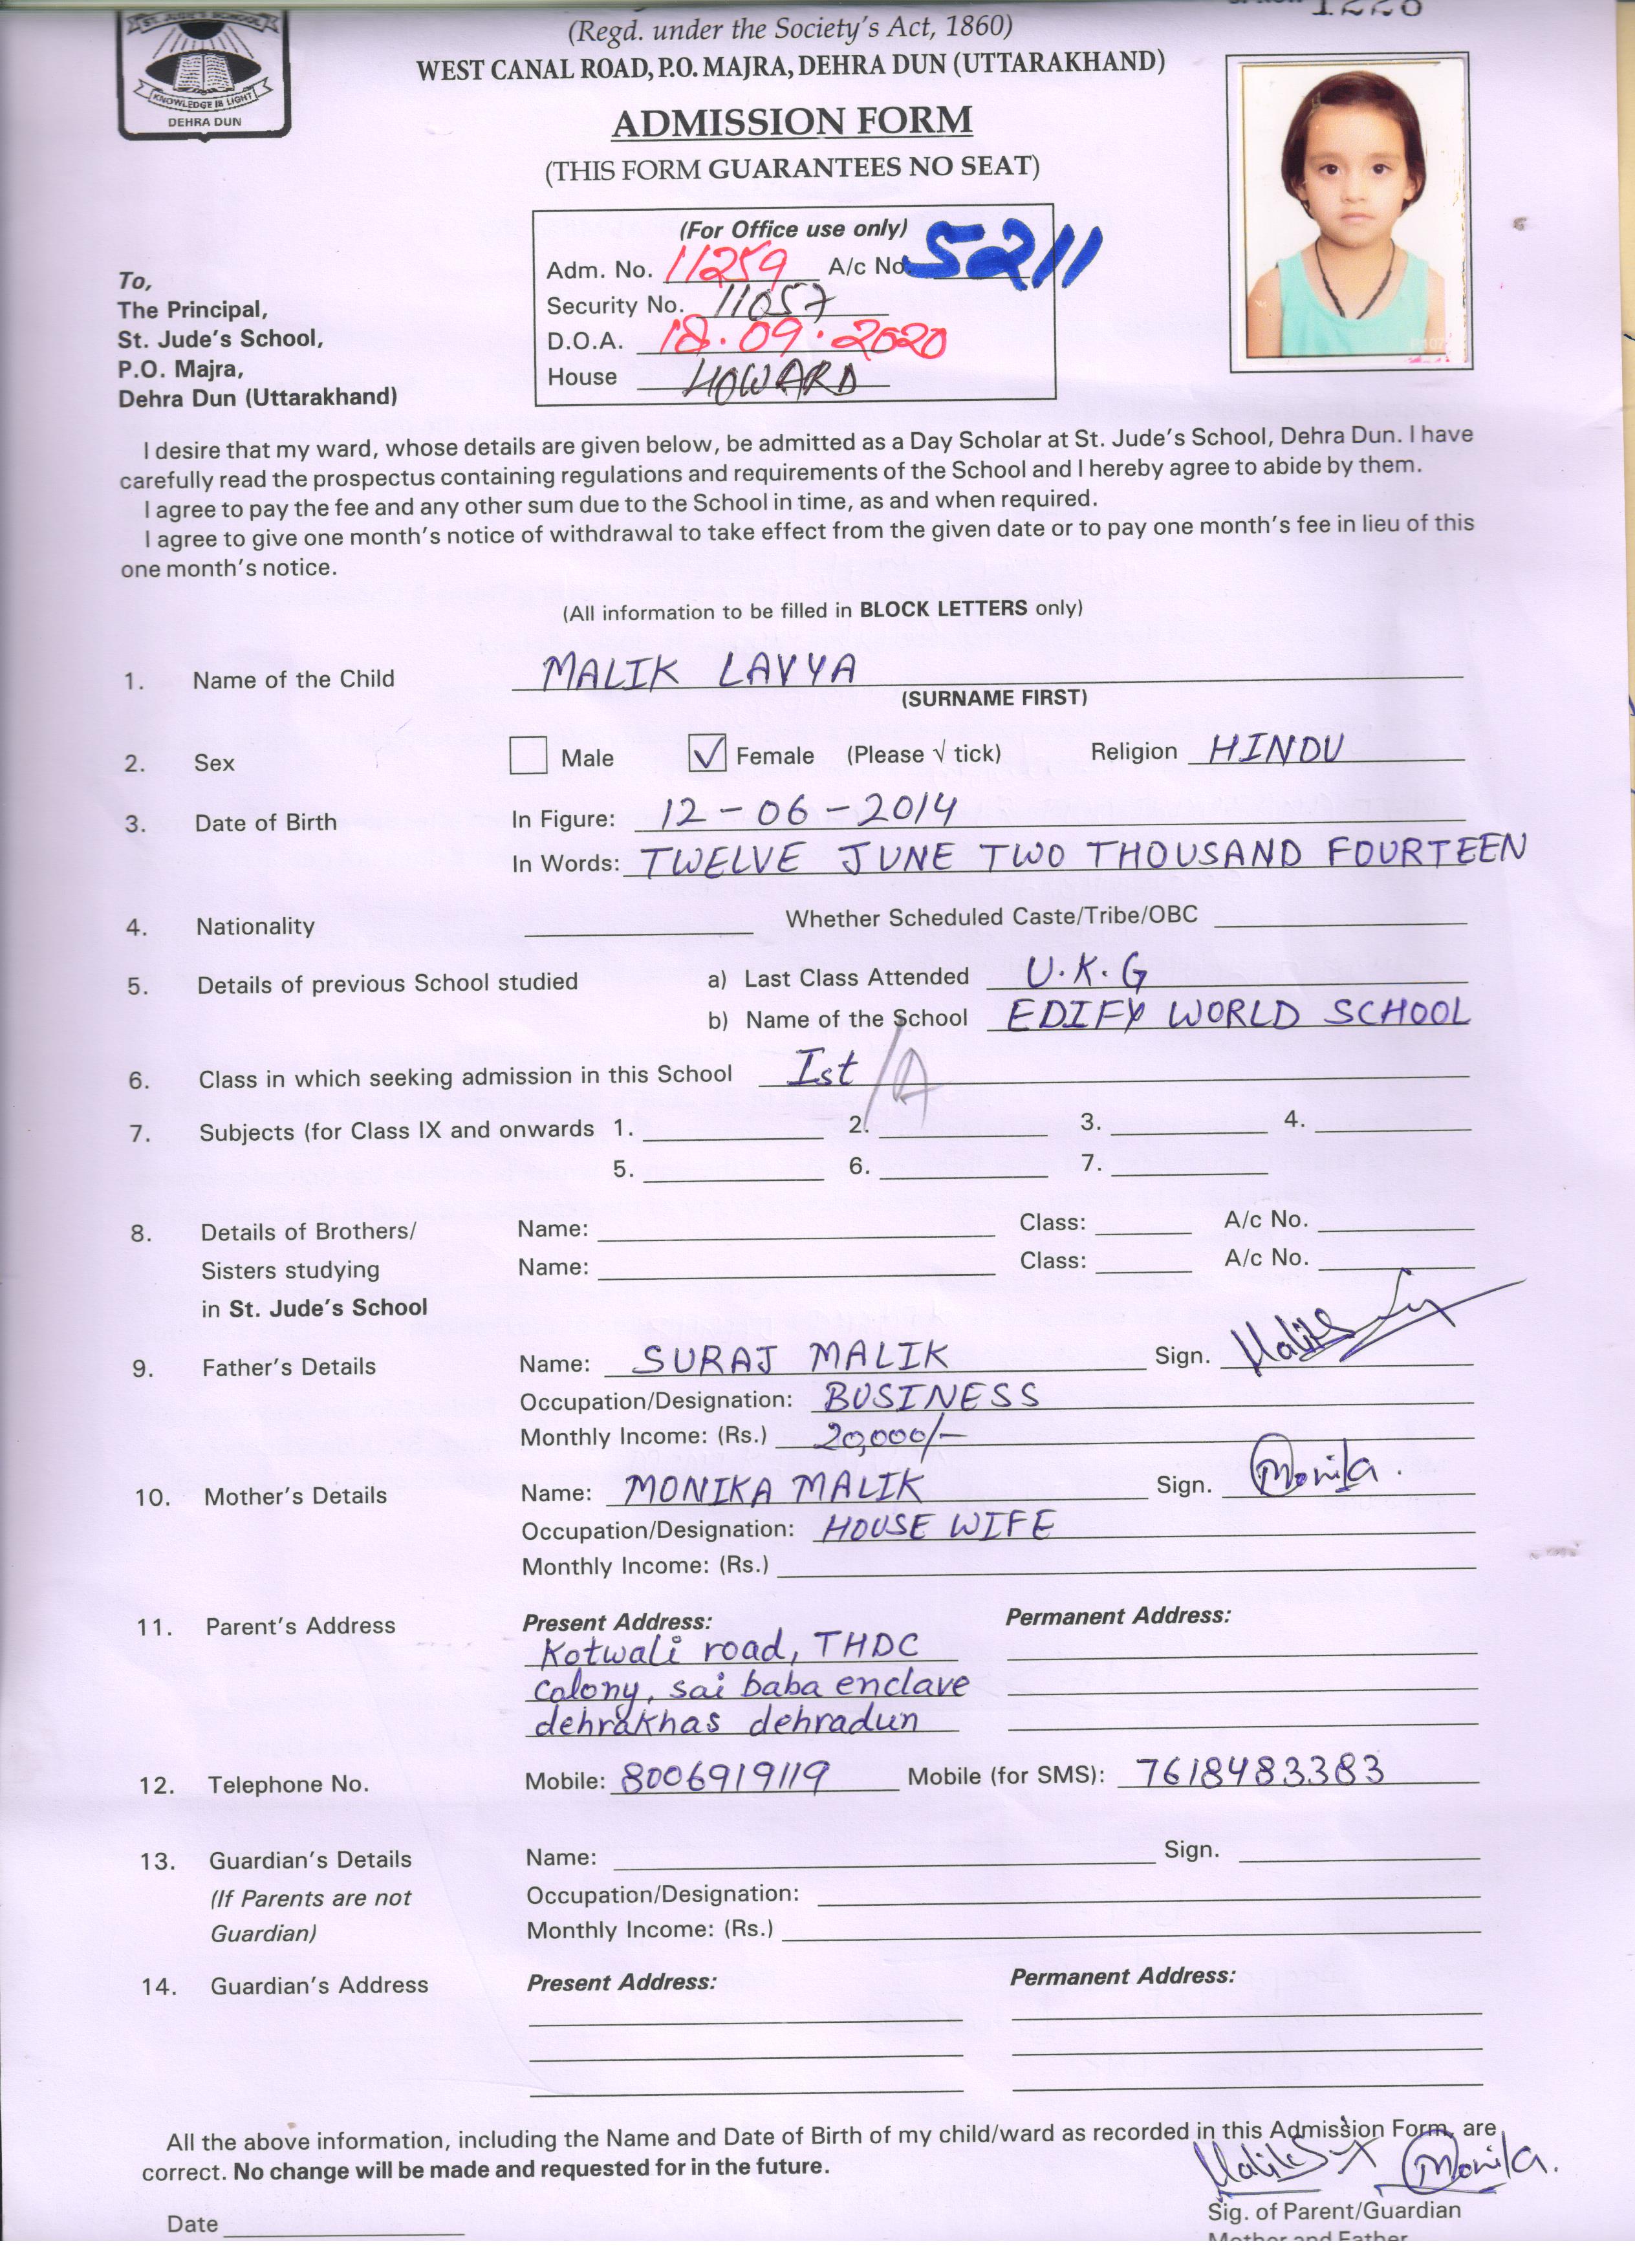 ST. JUDE'S SCHOOL
KNOWLEDGE IS LIGHT
DEHRA DUN
(Regd. under the Society's Act, 1860)
WEST CANAL ROAD, P.O. MAJRA, DEHRA DUN (UTTARAKHAND)
ADMISSION FORM
(THIS FORM GUARANTEES NO SEAT)
(For Office use only)
Adm. No. 11259 A/c No. 5211
Security No. 11057
D.O.A. 18.09.2020
House HOWARD
To,
The Principal,
St. Jude's School,
P.O. Majra,
Dehra Dun (Uttarakhand)
I desire that my ward, whose details are given below, be admitted as a Day Scholar at St. Jude's School, Dehra Dun. I have
carefully read the prospectus containing regulations and requirements of the School and I hereby agree to abide by them.
I agree to pay the fee and any other sum due to the School in time, as and when required.
I agree to give one month's notice of withdrawal to take effect from the given date or to pay one month's fee in lieu of this
one month's notice.
(All information to be filled in BLOCK LETTERS only)
1. Name of the Child MALIK LAVYA
(SURNAME FIRST)
2. Sex Male ✓ Female (Please √ tick) Religion HINDU
3. Date of Birth In Figure: 12-06-2014
In Words: TWELVE JUNE TWO THOUSAND FOURTEEN
4. Nationality Whether Scheduled Caste/Tribe/OBC
5. Details of previous School studied a) Last Class Attended U.K.G
b) Name of the School EDIFY WORLD SCHOOL
6. Class in which seeking admission in this School Ist /A
7. Subjects (for Class IX and onwards 1. 2. 3. 4.
5. 6. 7.
8. Details of Brothers/ Name: Class: A/c No.
Sisters studying Name: Class: A/c No.
in St. Jude's School
9. Father's Details Name: SURAJ MALIK Sign.
Occupation/Designation: BUSINESS
Monthly Income: (Rs.) 20,000/-
10. Mother's Details Name: MONIKA MALIK Sign. Monika.
Occupation/Designation: HOUSE WIFE
Monthly Income: (Rs.)
11. Parent's Address Present Address: Permanent Address:
Kotwali road, THDC
colony, sai baba enclave
dehrakhas dehradun
12. Telephone No. Mobile: 8006919119 Mobile (for SMS): 7618483383
13. Guardian's Details Name: Sign.
(If Parents are not Occupation/Designation:
Guardian) Monthly Income: (Rs.)
14. Guardian's Address Present Address: Permanent Address:
All the above information, including the Name and Date of Birth of my child/ward as recorded in this Admission Form, are
correct. No change will be made and requested for in the future.
Monika.
Sig. of Parent/Guardian
Date
Mother and Father